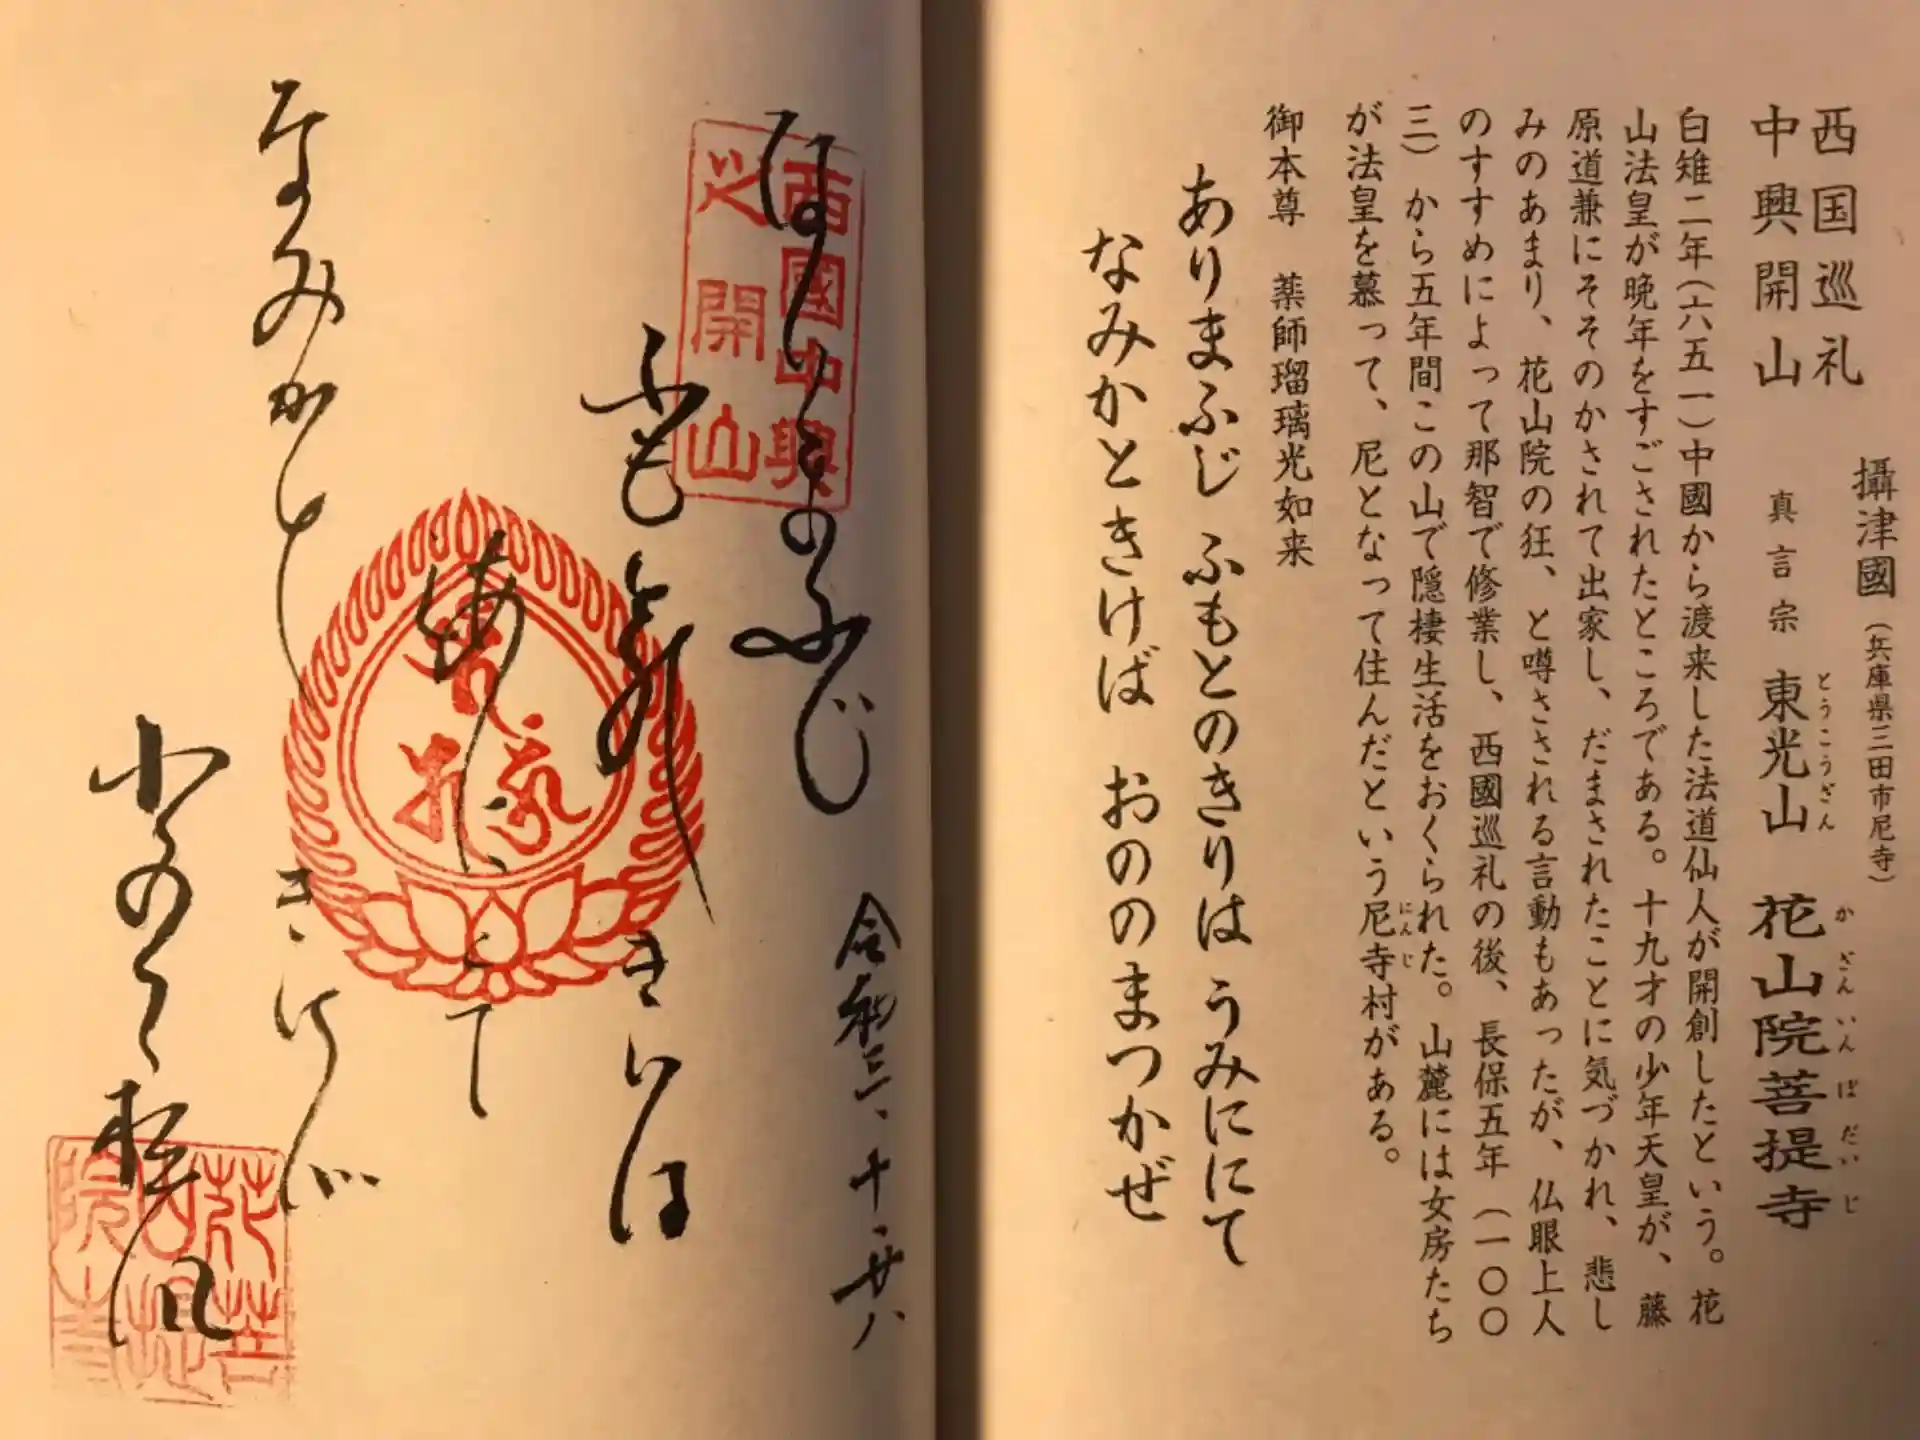 西国巡礼
中興開山
攝津國（兵庫県三田市尼寺）
真言宗 東光山 花山院菩提寺
とうこうざん
かざんいんぼだいじ
白雉二年（六五一）中國から渡来した法道仙人が開創したという。花
山法皇が晩年をすごされたところである。十九才の少年天皇が、藤
原道兼にそそのかされて出家し、だまされたことに気づかれ、悲し
みのあまり、花山院の狂、と噂さされる言動もあったが、仏眼上人
のすすめによって那智で修業し、西國巡礼の後、長保五年（一〇〇
三）から五年間この山で隠棲生活をおくられた。山麓には女房たち
が法皇を慕って、尼となって住んだという尼寺村がある。
にんじ
御本尊 薬師瑠璃光如来
ありまふじ ふもとのきりは うみににて
なみかときけば おののまつかぜ
西國中興
之開山
令和三、十、廿八
ふじ
きりは
なみかと
きけば
花菩
山提
院寺